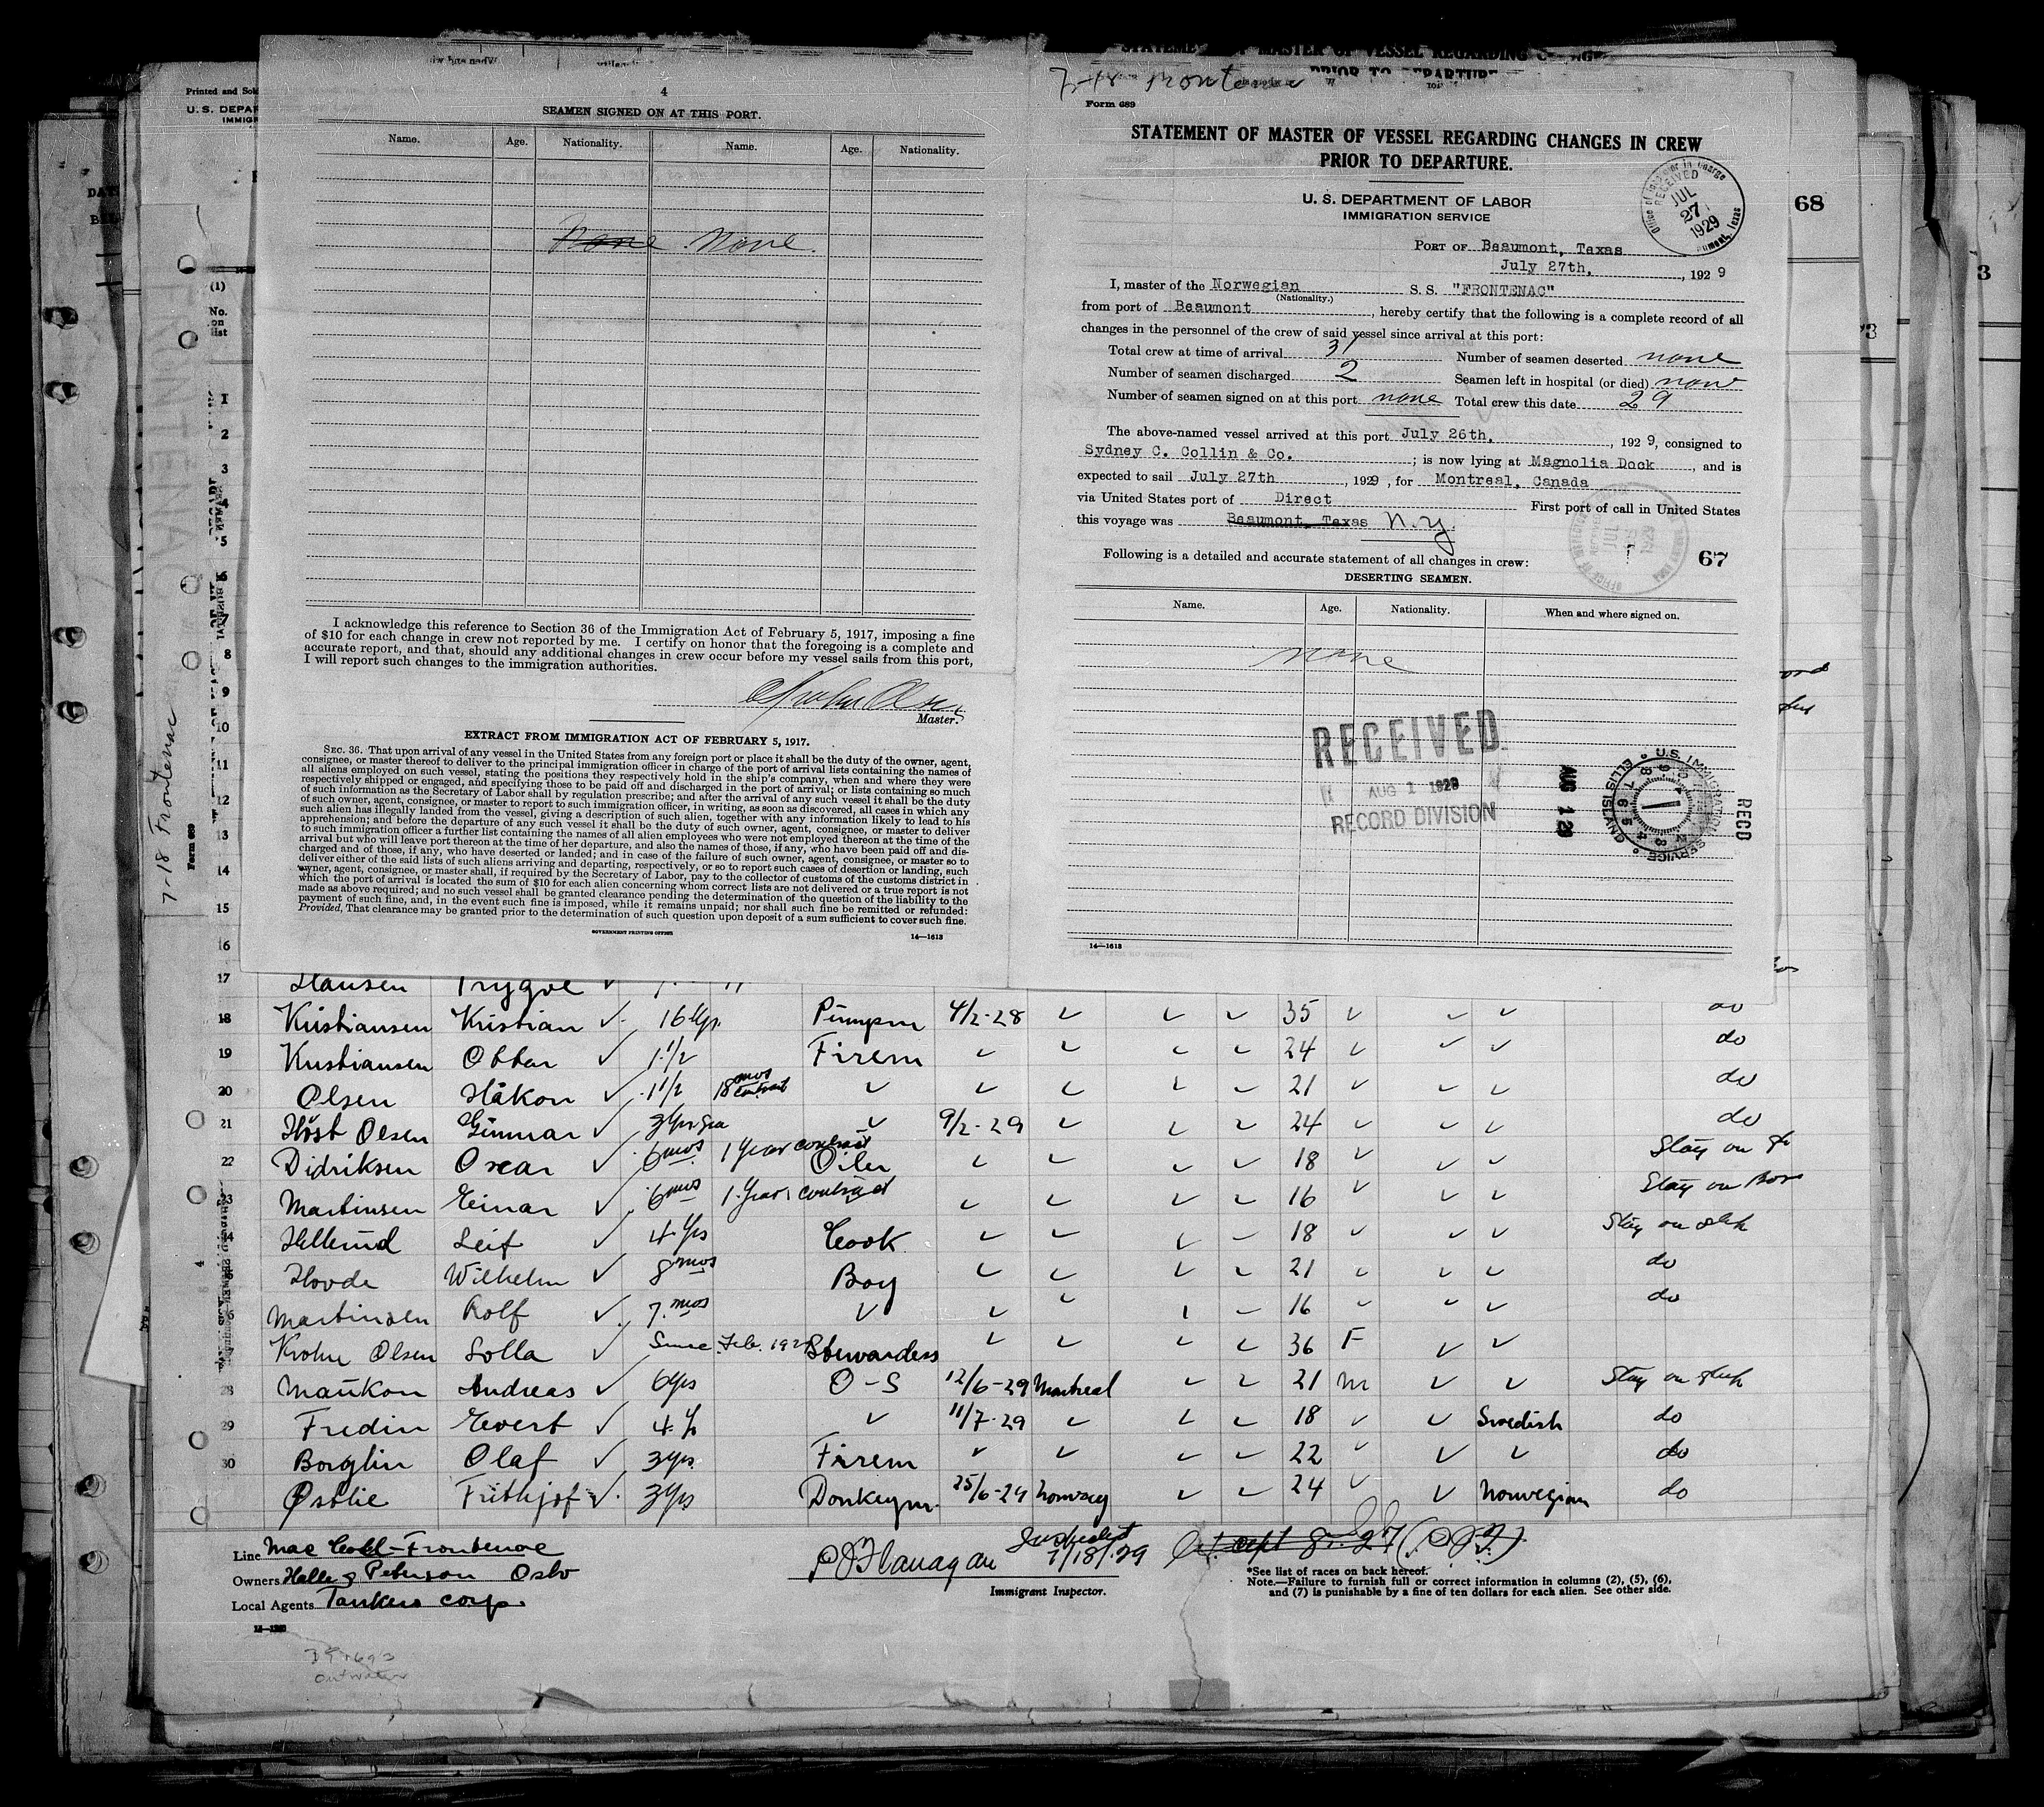 4
SEAMEN SIGNED ON AT THIS PORT.
Name. Age. Nationality. Name. Age. Nationality.
None None.
I acknowledge this reference to Section 36 of the Immigration Act of February 5, 1917, imposing a fine
of $10 for each change in crew not reported by me. I certify on honor that the foregoing is a complete and
accurate report, and that, should any additional changes in crew occur before my vessel sails from this port,
I will report such changes to the immigration authorities.
Master.
EXTRACT FROM IMMIGRATION ACT OF FEBRUARY 5, 1917.
SEC. 36. That upon arrival of any vessel in the United States from any foreign port or place it shall be the duty of the owner, agent,
consignee, or master thereof to deliver to the principal immigration officer in charge of the port of arrival lists containing the names of
all aliens employed on such vessel, stating the positions they respectively hold in the ship's company, when and where they were
respectively shipped or engaged, and specifying those to be paid off and discharged in the port of arrival; or lists containing so much
of such information as the Secretary of Labor shall by regulation prescribe; and after the arrival of any such vessel it shall be the duty
of such owner, agent, consignee, or master to report to such immigration officer, in writing, as soon as discovered, all cases in which any
such alien has illegally landed from the vessel, giving a description of such alien, together with any information likely to lead to his
apprehension; and before the departure of any such vessel it shall be the duty of such owner, agent, consignee, or master to deliver
to such immigration officer a further list containing the names of all alien employees who were not employed thereon at the time of the
arrival but who will leave port thereon at the time of her departure, and also the names of those, if any, who have been paid off and dis-
charged and of those, if any, who have deserted or landed; and in case of the failure of such owner, agent, consignee, or master so to
deliver either of the said lists of such aliens arriving and departing, respectively, or so to report such cases of desertion or landing, such
owner, agent, consignee, or master shall, if required by the Secretary of Labor, pay to the collector of customs of the customs district in
which the port of arrival is located the sum of $10 for each alien concerning whom correct lists are not delivered or a true report is not
made as above required; and no such vessel shall be granted clearance pending the determination of the question of the liability to the
payment of such fine, and, in the event such fine is imposed, while it remains unpaid; nor shall such fine be remitted or refunded:
Provided, That clearance may be granted prior to the determination of such question upon deposit of a sum sufficient to cover such fine.
GOVERNMENT PRINTING OFFICE 14—1613
7-18 Frontenac
Form 689
STATEMENT OF MASTER OF VESSEL REGARDING CHANGES IN CREW
PRIOR TO DEPARTURE.
U. S. DEPARTMENT OF LABOR
IMMIGRATION SERVICE
RECEIVED JUL 27 1929
68
PORT OF Beaumont, Texas
July 27th, , 1929
I, master of the Norwegian S.S. "FRONTENAC"
(Nationality.)
from port of Beaumont , hereby certify that the following is a complete record of all
changes in the personnel of the crew of said vessel since arrival at this port:
Total crew at time of arrival 31 Number of seamen deserted none
Number of seamen discharged 2 Seamen left in hospital (or died) none
Number of seamen signed on at this port none Total crew this date 29
The above-named vessel arrived at this port July 26th, , 1929, consigned to
Sydney C. Collin & Co. ; is now lying at Magnolia Dock , and is
expected to sail July 27th , 1929 , for Montreal, Canada
via United States port of Direct First port of call in United States
this voyage was Beaumont, Texas N.Y.
67
Following is a detailed and accurate statement of all changes in crew:
DESERTING SEAMEN.
Name. Age. Nationality. When and where signed on.
none
RECEIVED
AUG 1 1929
RECORD DIVISION
AUG 1 29
U.S. IMMIGRATION SERVICE ELLIS ISLAND
RECD
14—1613
Printed and Sold
U. S. DEPAR
IMMIG
(1)
No.
on
list
FRONTENAC
7-18 Frontenac
Form 689
1
2
3
4
5
6
7
8
9
10
11
12
13
14
15
16
17 Hansen Trygve
18 Kristiansen Kristian 16 Yrs. Pumpm 4/2-28 35 do
19 Kristiansen Ottar 1 1/2 Firem 24 do
20 Olsen Håkon 1 1/2 18 mos contract 21 do
21 Höst Olsen Gunnar 3 Yrs Sea 9/2-29 24 do
22 Didriksen Oscar 6 mos 1 Year contract Oiler 18 Stay on
23 Martinsen Einar 6 mos 1 Year contract 16 Stay on
Hellerud Leif 4 Yrs Cook 18 Stay on
Hovde Wilhelm 8 mos Boy 21 do
Martinsen Rolf 7 mos 16 do
Krohn Olsen Lolla Since Feb. Stewardess 36 F
28 Maukon Andreas 6 Yrs O-S 12/6-29 Montreal 21 M Stay on
29 Fredin Evert 4 11/7-29 18 Swedish do
30 Borglin Olaf 3 Yrs. Firem 22 do
Östlie Frithjof 3 Yrs Donkeym. 25/6-29 Norway 24 Norwegian do
Line Mac Coll-Frontenac
Owners Halle & Peterson Oslo
Local Agents Tankers Corp.
PJ Flanagan 7/18/29
Immigrant Inspector.
*See list of races on back hereof.
Note.—Failure to furnish full or correct information in columns (2), (5), (6),
and (7) is punishable by a fine of ten dollars for each alien. See other side.